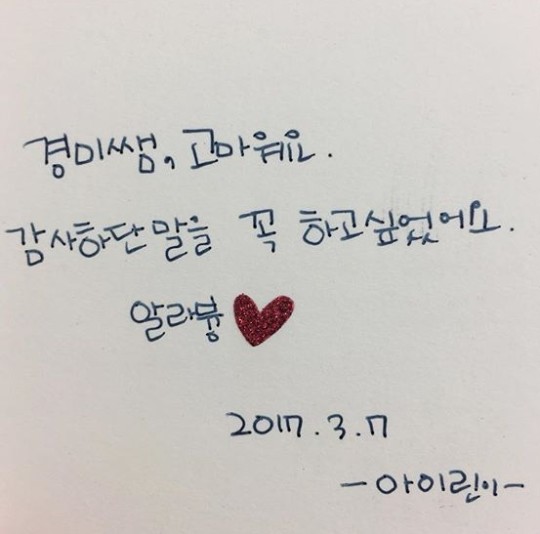 경미쌤, 고마워요.
감사하단 말을 꼭 하고싶었어요.
알라뷰
2017.3.7
-아이린이-